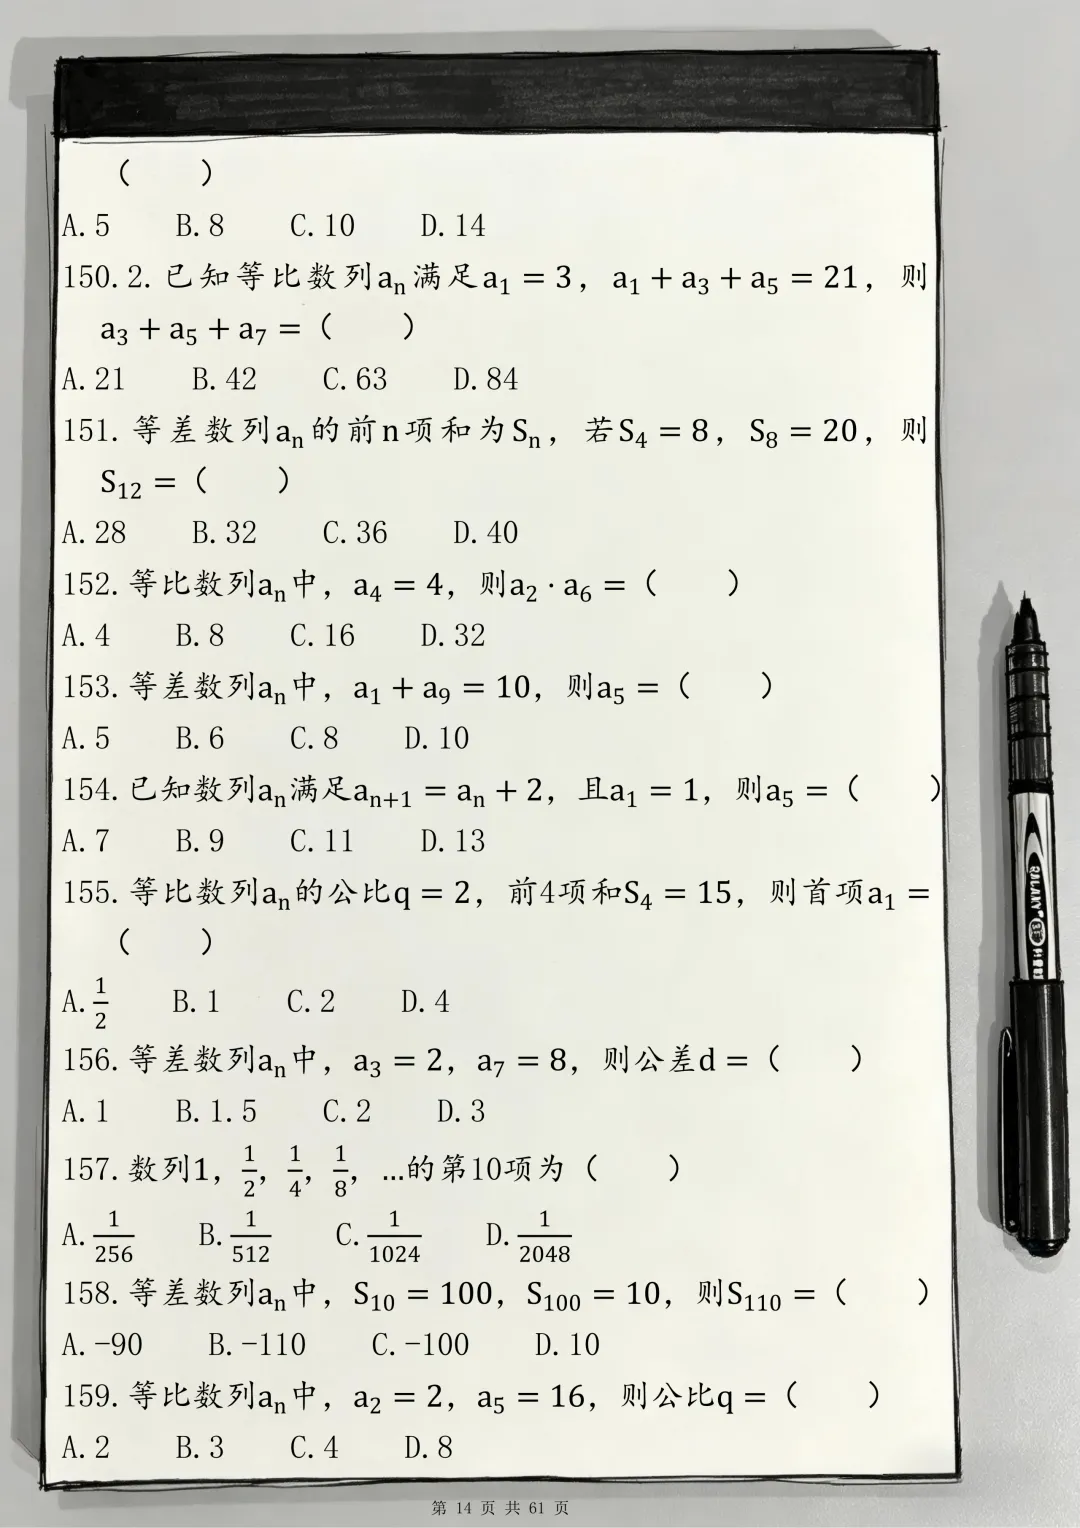 （　　）
A.5　B.8　C.10　D.14
150.2.已知等比数列aₙ满足a₁ = 3，a₁ + a₃ + a₅ = 21，则
a₃ + a₅ + a₇ =（　　）
A.21　B.42　C.63　D.84
151.等差数列aₙ的前n项和为Sₙ，若S₄ = 8，S₈ = 20，则
S₁₂ =（　　）
A.28　B.32　C.36　D.40
152.等比数列aₙ中，a₄ = 4，则a₂ · a₆ =（　　）
A.4　B.8　C.16　D.32
153.等差数列aₙ中，a₁ + a₉ = 10，则a₅ =（　　）
A.5　B.6　C.8　D.10
154.已知数列aₙ满足aₙ₊₁ = aₙ + 2，且a₁ = 1，则a₅ =（　　）
A.7　B.9　C.11　D.13
155.等比数列aₙ的公比q = 2，前4项和S₄ = 15，则首项a₁ =
（　　）
A.1/2　B.1　C.2　D.4
156.等差数列aₙ中，a₃ = 2，a₇ = 8，则公差d =（　　）
A.1　B.1.5　C.2　D.3
157.数列1，1/2，1/4，1/8，…的第10项为（　　）
A.1/256　B.1/512　C.1/1024　D.1/2048
158.等差数列aₙ中，S₁₀ = 100，S₁₀₀ = 10，则S₁₁₀ =（　　）
A.-90　B.-110　C.-100　D.10
159.等比数列aₙ中，a₂ = 2，a₅ = 16，则公比q =（　　）
A.2　B.3　C.4　D.8
第 14 页 共 61 页